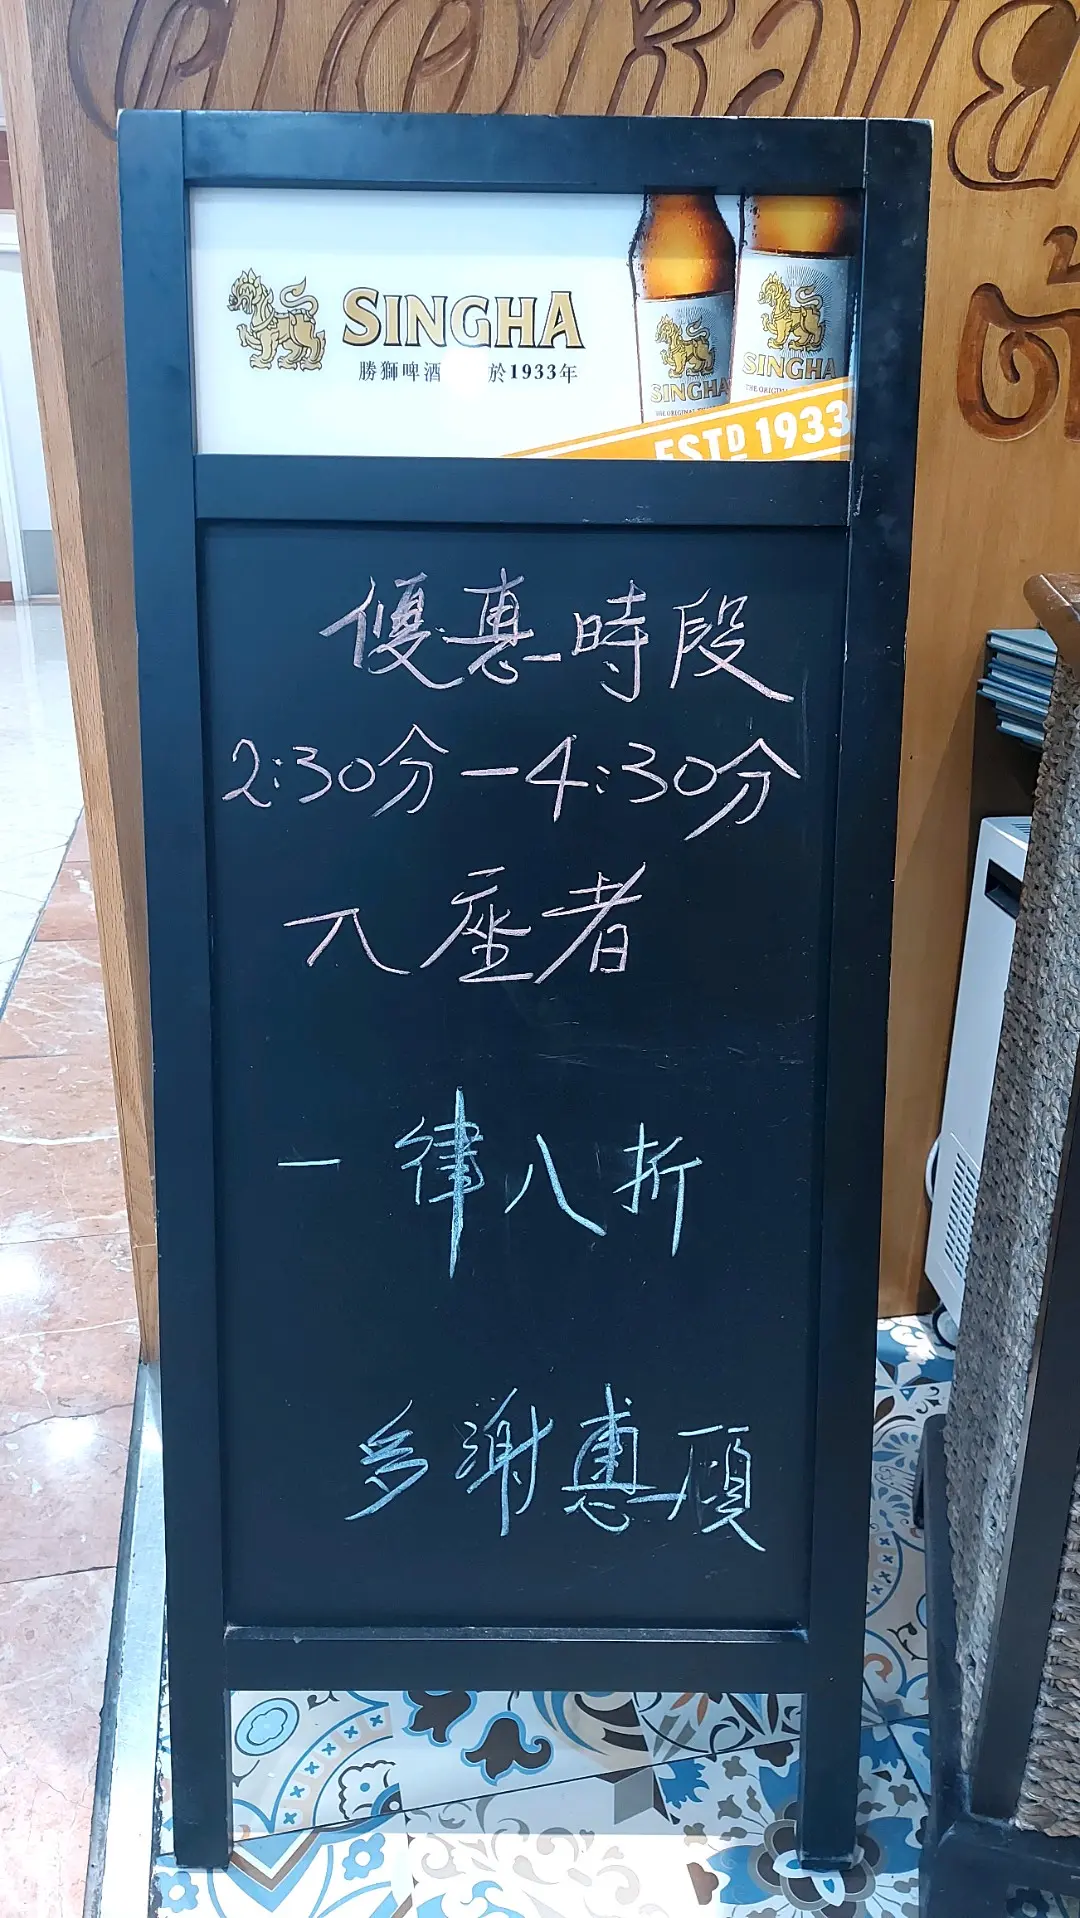 SINGHA
勝獅啤酒 於1933年
SINGHA
SINGHA
ESTD 1933
優惠時段
2:30分－4:30分
入座者
一律八折
多謝惠顧